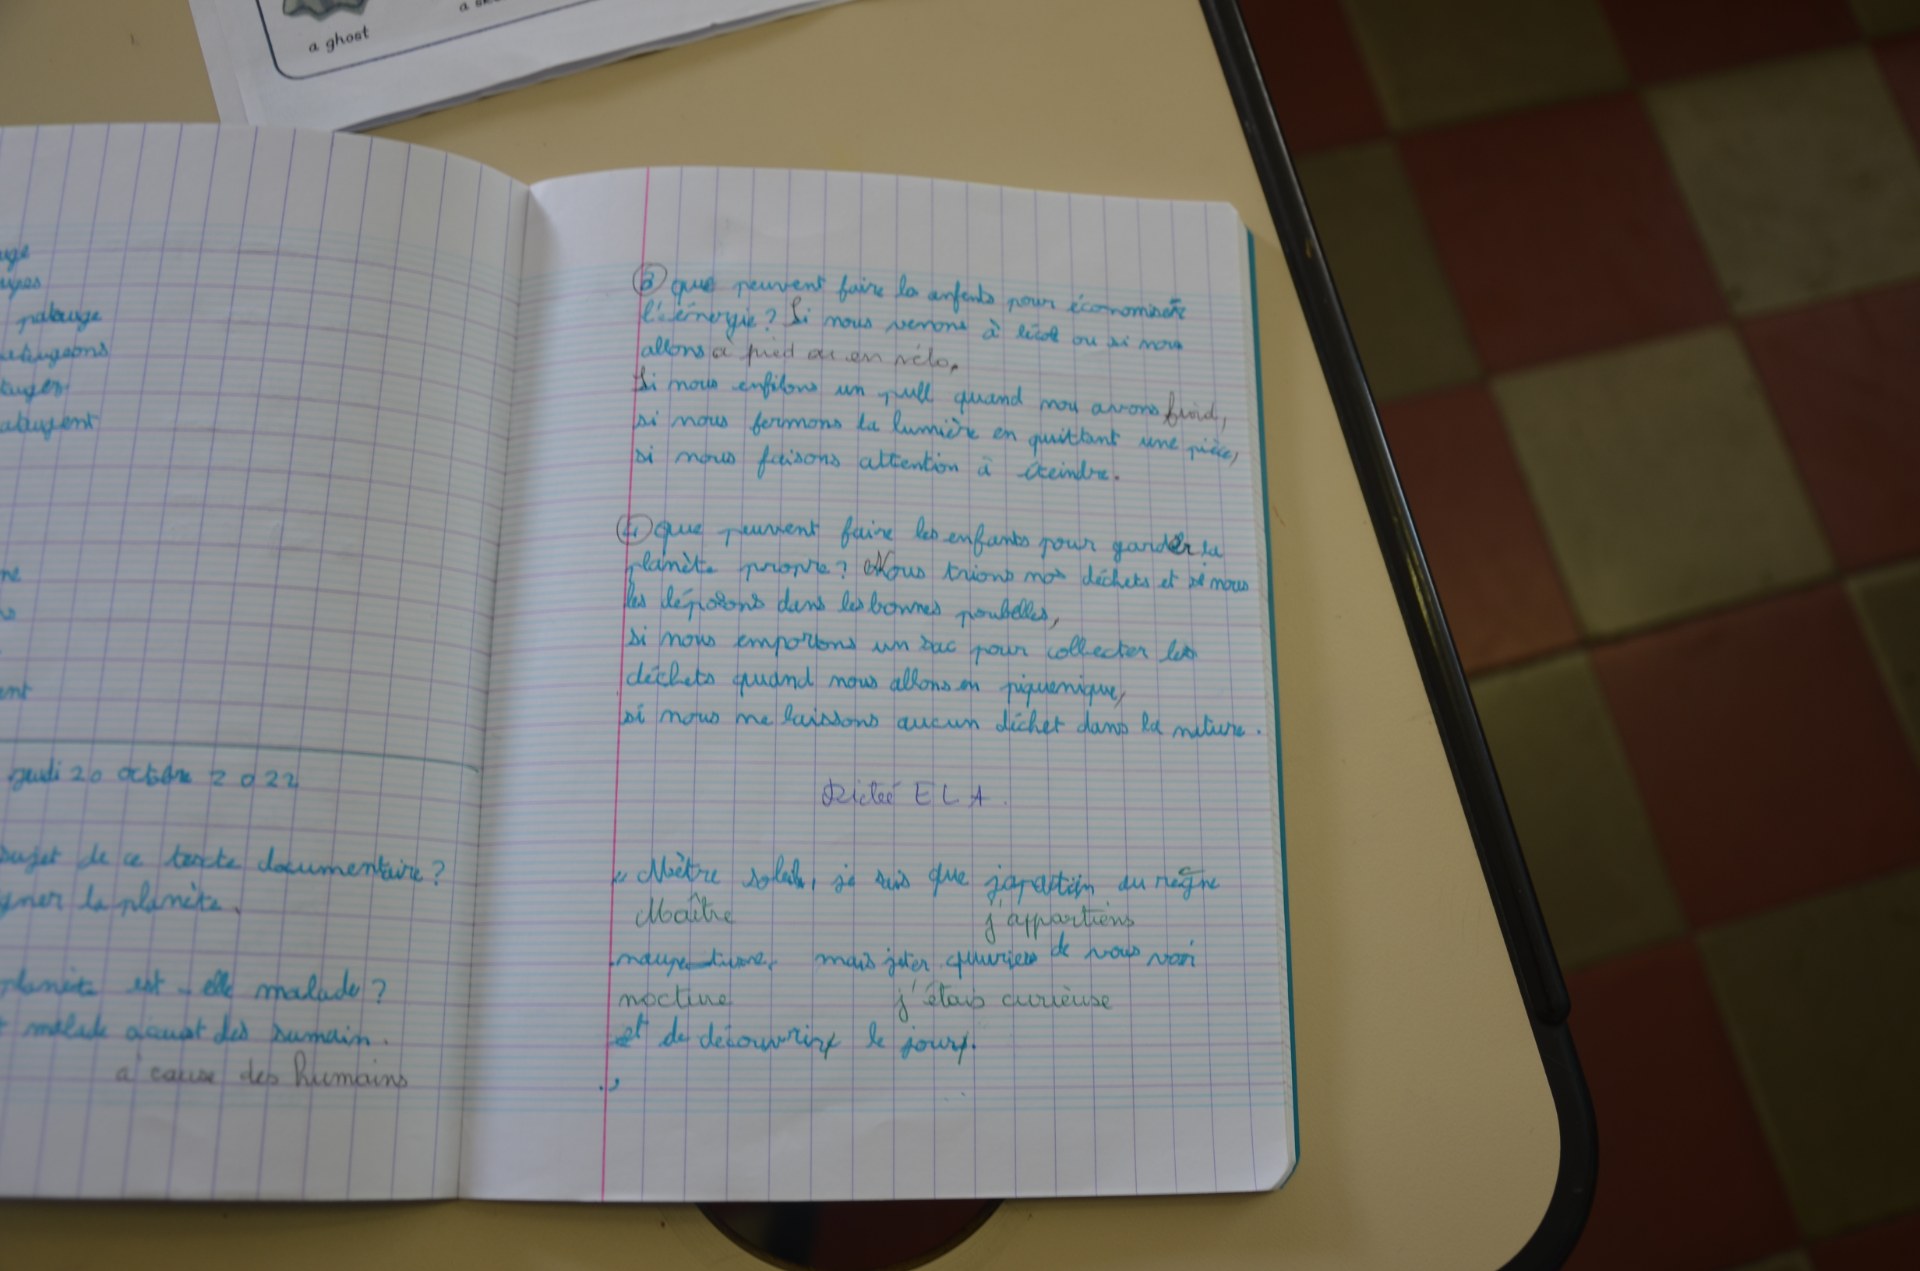 a ghost
palauge
jeudi 20 octobre 2022
sujet de ce texte documentaire ?
la planète.
planète est-elle malade ?
malade des humain.
à cause des humains
③ que peuvent faire les enfants pour économiser
l'énergie ? Si nous venons à école ou si nous
allons à pied ou en vélo.
Si nous enfilons un pull quand nou avons froid,
si nous fermons la lumière en quittant une pièce,
si nous faisons attention à éteindre.
④ que peuvent faire les enfants pour garder la
planète propre ? Nous trions nos déchets et si nous
les déposons dans les bonnes poubelles,
si nous emportons un sac pour collecter les
déchets quand nous allons en piquenique,
si nous ne laissons aucun déchet dans la nature.
Dictée ELA.
" Mètre soleil, je suis que japartin du règne
Maître j'appartiens
mais de vous voir
nocturne j'étais curieuse
et de découvrir le jour.
"